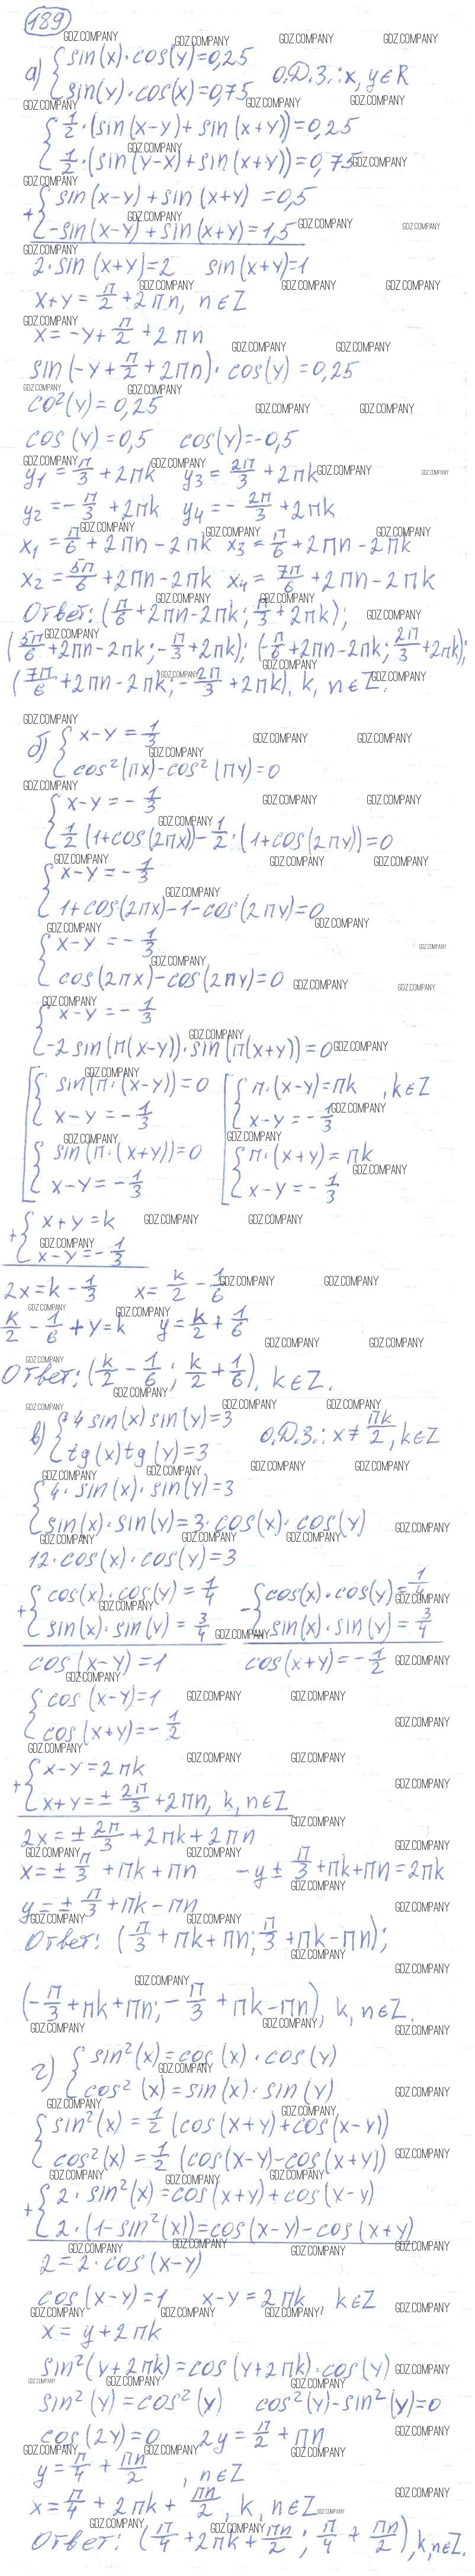 189
а) { sin(x)·cos(y)=0,25
sin(y)·cos(x)=0,75 О.Д.З.: x, y∈R
{ 1/2·(sin(x-y)+sin(x+y))=0,25
1/2·(sin(y-x)+sin(x+y))=0,75
+{ sin(x-y)+sin(x+y)=0,5
-sin(x-y)+sin(x+y)=1,5
2·sin(x+y)=2 sin(x+y)=1
x+y=π/2+2πn, n∈Z
x=-y+π/2+2πn
sin(-y+π/2+2πn)·cos(y)=0,25
co²(y)=0,25
cos(y)=0,5 cos(y)=-0,5
y₁=π/3+2πk y₃=2π/3+2πk
y₂=-π/3+2πk y₄=-2π/3+2πk
x₁=π/6+2πn-2πk x₃=π/6+2πn-2πk
x₂=5π/6+2πn-2πk x₄=7π/6+2πn-2πk
Ответ: (π/6+2πn-2πk; π/3+2πk);
(5π/6+2πn-2πk; -π/3+2πk); (-π/6+2πn-2πk; 2π/3+2πk);
(7π/6+2πn-2πk; -2π/3+2πk), k, n∈Z.
б) { x-y=1/3
cos²(πx)-cos²(πy)=0
{ x-y=-1/3
1/2(1+cos(2πx))-1/2·(1+cos(2πy))=0
{ x-y=-1/3
1+cos(2πx)-1-cos(2πy)=0
{ x-y=-1/3
cos(2πx)-cos(2πy)=0
{ x-y=-1/3
-2sin(π(x-y))·sin(π(x+y))=0
[ { sin(π·(x-y))=0 [ { π·(x-y)=πk, k∈Z
x-y=-1/3 x-y=-1/3
{ sin(π·(x+y))=0 { π·(x+y)=πk
x-y=-1/3 x-y=-1/3
+{ x+y=k
x-y=-1/3
2x=k-1/3 x=k/2-1/6
k/2-1/6+y=k y=k/2+1/6
Ответ: (k/2-1/6; k/2+1/6), k∈Z.
в) { 4sin(x)sin(y)=3 О.Д.З.: x≠πk/2, k∈Z
tg(x)tg(y)=3
{ 4·sin(x)·sin(y)=3
sin(x)·sin(y)=3·cos(x)·cos(y)
12·cos(x)·cos(y)=3
+{ cos(x)·cos(y)=1/4 -{ cos(x)·cos(y)=1/4
sin(x)·sin(y)=3/4 sin(x)·sin(y)=3/4
cos(x-y)=1 cos(x+y)=-1/2
{ cos(x-y)=1
cos(x+y)=-1/2
+{ x-y=2πk
x+y=±2π/3+2πn, k, n∈Z
2x=±2π/3+2πk+2πn
x=±π/3+πk+πn -y±π/3+πk+πn=2πk
y=±π/3+πk-πn
Ответ: (π/3+πk+πn; π/3+πk-πn);
(-π/3+πk+πn; -π/3+πk-πn), k, n∈Z.
г) { sin²(x)=cos(x)·cos(y)
cos²(x)=sin(x)·sin(y)
{ sin²(x)=1/2(cos(x+y)+cos(x-y))
cos²(x)=1/2(cos(x-y)-cos(x+y))
+{ 2·sin²(x)=cos(x+y)+cos(x-y)
2·(1-sin²(x))=cos(x-y)-cos(x+y)
2=2·cos(x-y)
cos(x-y)=1 x-y=2πk, k∈Z
x=y+2πk
sin²(y+2πk)=cos(y+2πk)·cos(y)
sin²(y)=cos²(y) cos²(y)-sin²(y)=0
cos(2y)=0 2y=π/2+πn
y=π/4+πn/2, n∈Z
x=π/4+2πk+πn/2, k, n∈Z
Ответ: (π/4+2πk+πn/2; π/4+πn/2), k, n∈Z.